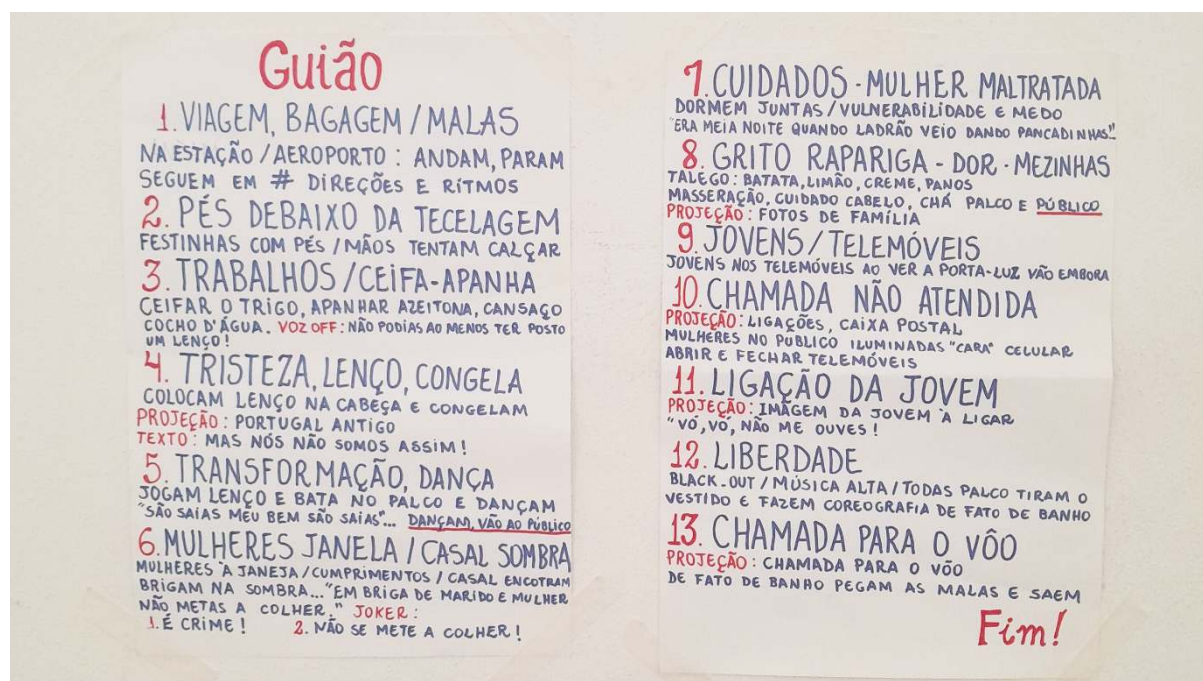 Guião
1. VIAGEM, BAGAGEM / MALAS
NA ESTAÇÃO / AEROPORTO : ANDAM, PARAM
SEGUEM EM # DIREÇÕES E RÍTMOS
2. PÉS DEBAIXO DA TECELAGEM
FESTINHAS COM PÉS / MÃOS TENTAM CALÇAR
3. TRABALHOS / CEIFA-APANHA
CEIFAR O TRIGO, APANHAR AZEITONA, CANSAÇO
COCHO D'ÁGUA. VOZ OFF : NÃO PODIAS AO MENOS TER POSTO
UM LENÇO !
4. TRISTEZA, LENÇO, CONGELA
COLOCAM LENÇO NA CABEÇA E CONGELAM
PROJEÇÃO : PORTUGAL ANTIGO
TEXTO : MAS NÓS NÃO SOMOS ASSIM !
5. TRANSFORMAÇÃO, DANÇA
JOGAM LENÇO E BATA NO PALCO E DANÇAM
"SÃO SAIAS MEU BEM SÃO SAIAS"... DANÇAM, VÃO AO PÚBLICO
6. MULHERES JANELA / CASAL SOMBRA
MULHERES À JANEJA / CUMPRIMENTOS / CASAL ENCOTRAM
BRIGAM NA SOMBRA... "EM BRIGA DE MARIDO E MULHER
NÃO METAS A COLHER." JOKER :
1. É CRIME ! 2. NÃO SE METE A COLHER !
7. CUIDADOS - MULHER MALTRATADA
DORMEM JUNTAS / VULNERABILIDADE E MEDO
"ERA MEIA NOITE QUANDO LADRÃO VEIO DANDO PANCADINHAS"
8. GRITO RAPARIGA - DOR - MEZINHAS
TALEGO : BATATA, LIMÃO, CREME, PANOS
MASSERAÇÃO, CUIDADO CABELO, CHÁ PALCO E PÚBLICO
PROJEÇÃO : FOTOS DE FAMÍLIA
9. JOVENS / TELEMÓVEIS
JOVENS NOS TELEMÓVEIS AO VER A PORTA-LUZ VÃO EMBORA
10. CHAMADA NÃO ATENDIDA
PROJEÇÃO : LIGAÇÕES, CAIXA POSTAL
MULHERES NO PUBLICO ILUMINADAS "CARA" CELULAR
ABRIR E FECHAR TELEMÓVEIS
11. LIGAÇÃO DA JOVEM
PROJEÇÃO : IMAGEM DA JOVEM À LIGAR
"VÓ, VÓ, NÃO ME OUVES !
12. LIBERDADE
BLACK-OUT / MÚSICA ALTA / TODAS PALCO TIRAM O
VESTIDO E FAZEM COREOGRAFIA DE FATO DE BANHO
13. CHAMADA PARA O VÔO
PROJEÇÃO : CHAMADA PARA O VÔO
DE FATO DE BANHO PEGAM AS MALAS E SAEM
Fim!